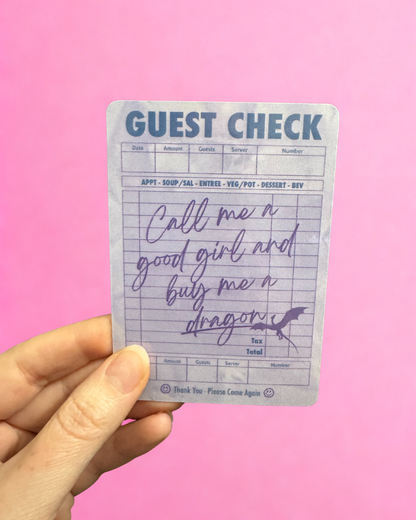 GUEST CHECK
Date Amount Guests Server Number
APPT - SOUP/SAL - ENTREE - VEG/POT - DESSERT - BEV
Call me a
good girl and
buy me a
dragon
Tax
Total
Amount Guests Server Number
Thank You - Please Come Again